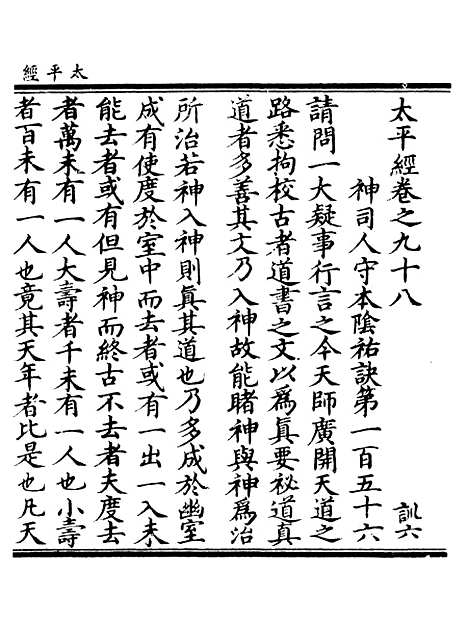 太平經
太平經卷之九十八
訓六
神司人守本陰祐訣第一百五十六
請問一大疑事行言之今天師廣開天道之
路悉拘校古者道書之文以爲眞要祕道眞
道者多善其文乃入神故能睹神與神爲治
所治若神入神則眞其道也乃多成於幽室
成有使度於室中而去者或有一出一入未
能去者或有但見神而終古不去者夫度去
者萬未有一人大壽者千未有一人也小壽
者百未有一人也竟其天年者比是也凡天